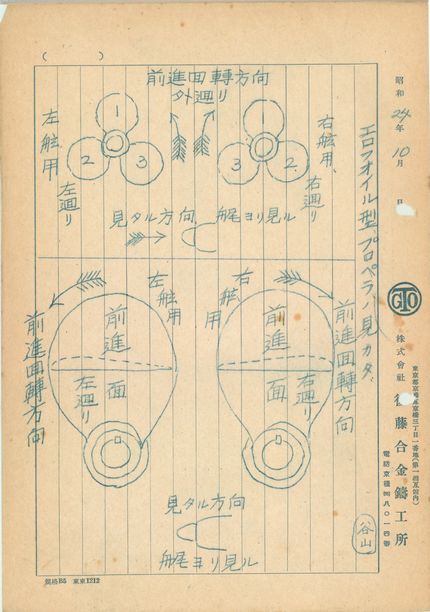 昭和24年10月 日
エロフオイル型プロペラノ見カタ、
前進回轉方向
外廻リ
右舷用、
右廻リ
1
2
3
左舷用
左廻リ
1
2
3
見タル方向、船尾ヨリ見ル
右舷用
前進面
右廻リ
前進回轉方向
左舷用
前進面
左廻リ
前進回轉方向
見タル方向
船尾ヨリ見ル
谷山
GTO
株式會社 後藤合金鑄工所
規格B5 東東1212